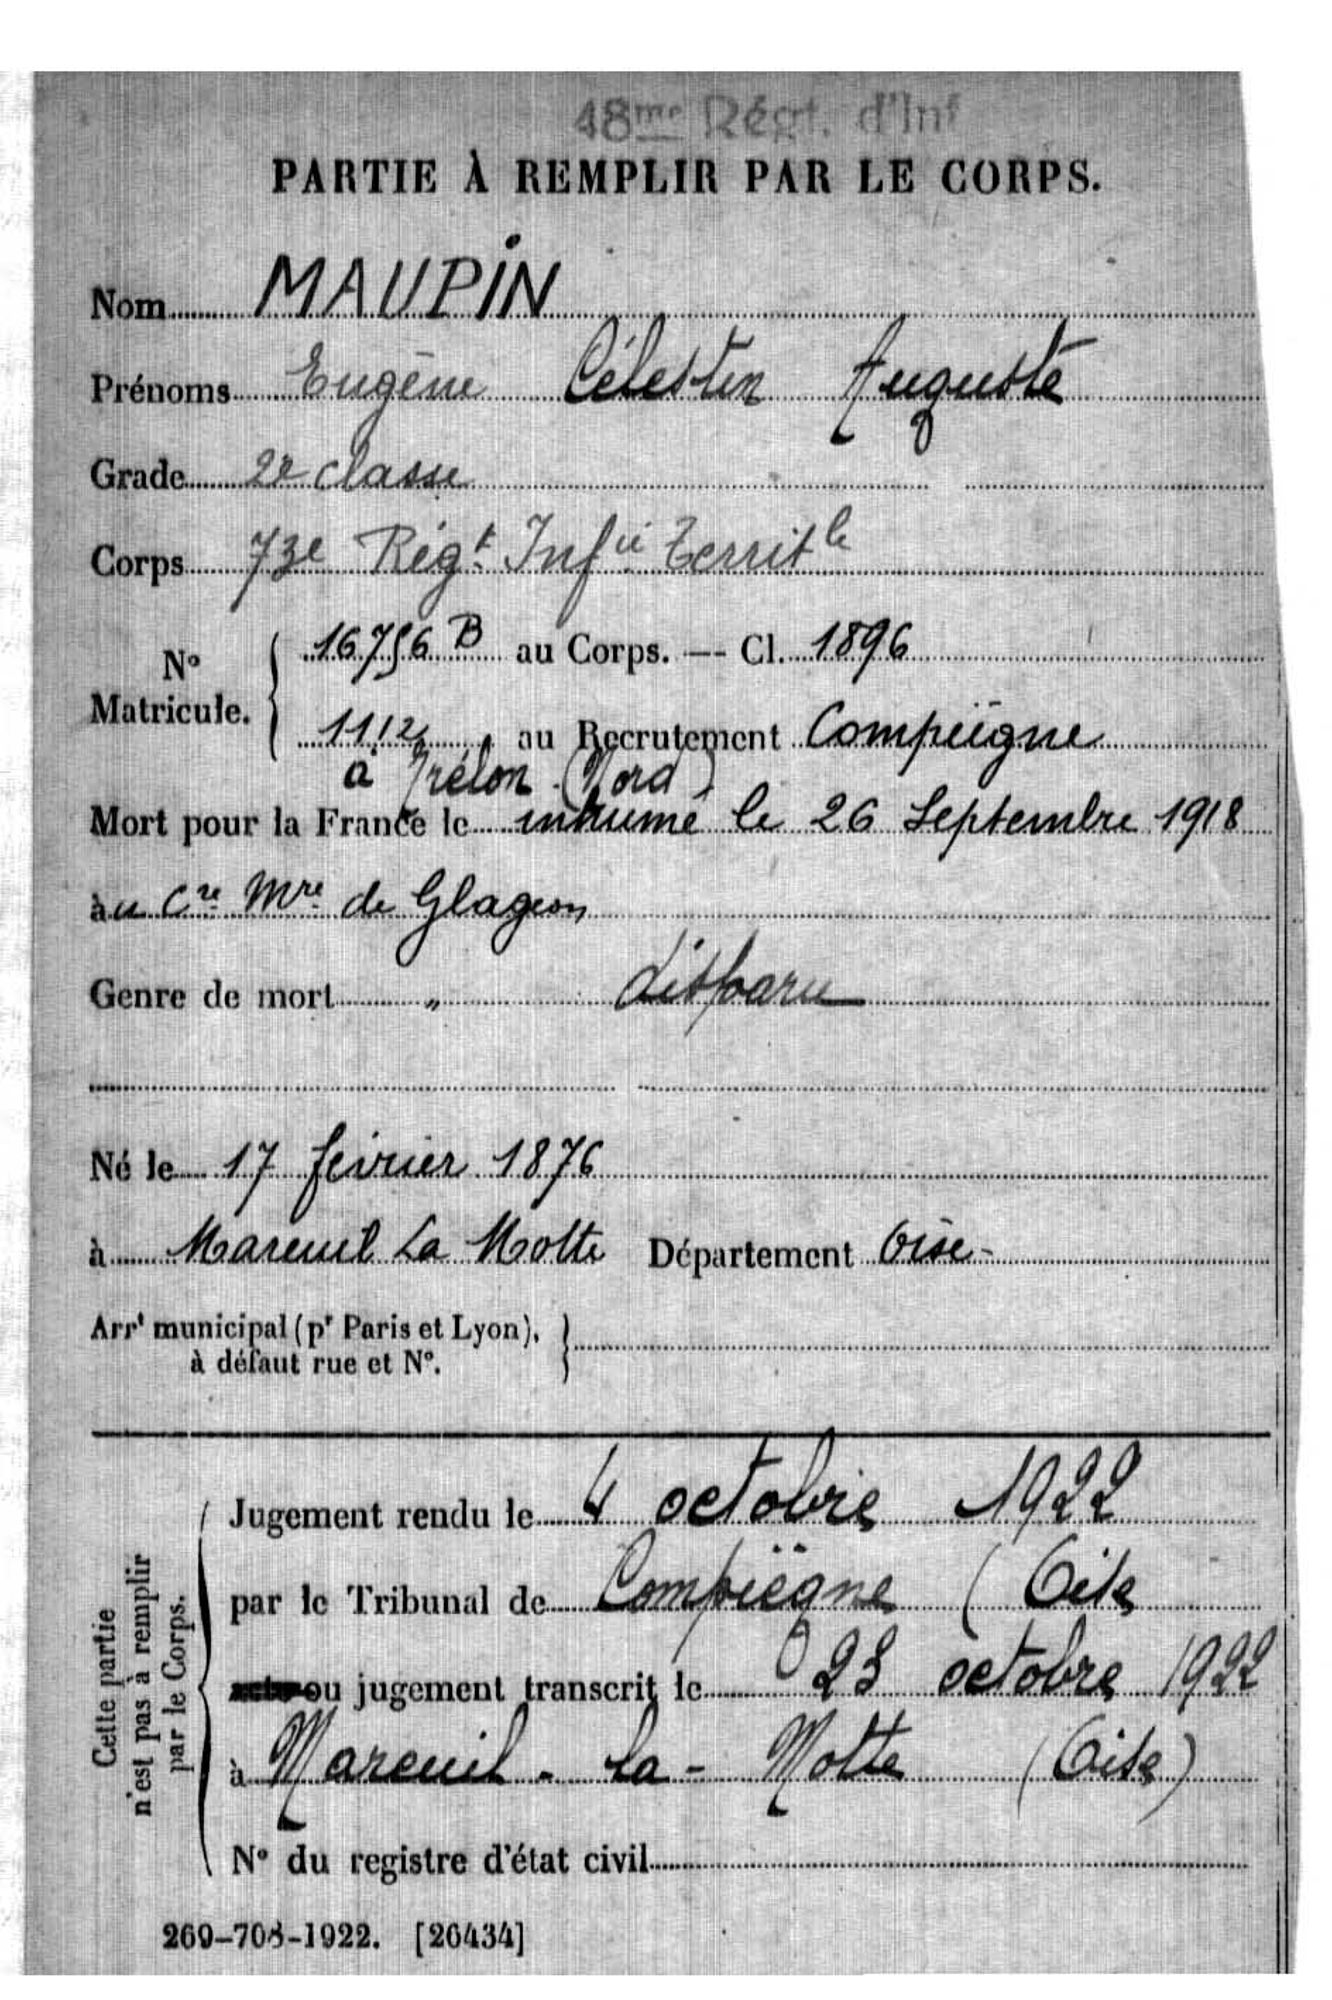 48me Régt. d'Inf
PARTIE À REMPLIR PAR LE CORPS.
Nom MAUPIN
Prénoms Eugène Célestin Auguste
Grade 2e classe
Corps 73e Régt Infie Territle
No Matricule. 16756 B au Corps. — Cl. 1896
1112 au Recrutement Compiègne
à Trélon (Nord)
Mort pour la France le inhumé le 26 Septembre 1918
au Cre Mre de Glageon
Genre de mort " disparu
Né le 17 février 1876
à Mareuil La Motte Département Oise-
Arrt municipal (pr Paris et Lyon),
à défaut rue et No.
Cette partie
n'est pas à remplir
par le Corps.
Jugement rendu le 4 octobre 1922
par le Tribunal de Compiègne (Oise
ou jugement transcrit le 23 octobre 1922
à Mareuil - la - Motte (Oise)
No du registre d'état civil
269-708-1922. [26434]